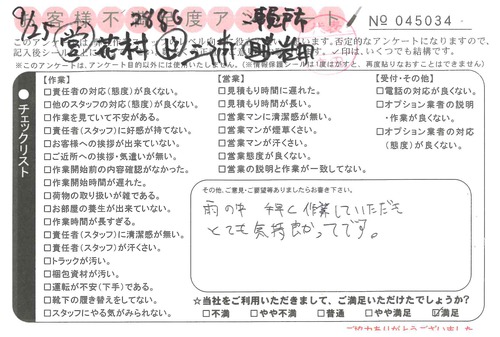 お客様不満足度アンケート
No 045034
9/25 営 花村
このアンケートは
否定的なアンケートになりますので、
記入後シール
印は、いくつでも結構です。
※このアンケートは、アンケート目的以外には使用いたしません。(※情報保護シールは1度はがすと、再度貼りなおすことはできません)
チェックリスト
【作業】
□責任者の対応(態度)が良くない。
□他のスタッフの対応(態度)が良くない。
□作業を見ていて不安がある。
□責任者(スタッフ)に好感が持てない。
□お客様への挨拶が出来ていない。
□ご近所への挨拶・気遣いが無い。
□作業開始前の内容確認がなかった。
□作業開始時間が遅れた。
□荷物の取り扱いが雑である。
□お部屋の養生が出来ていない。
□作業時間が長すぎる。
□責任者(スタッフ)に清潔感が無い。
□責任者(スタッフ)が汗くさい。
□トラックが汚い。
□梱包資材が汚い。
□運転が不安(下手)である。
□靴下の履き替えをしてない。
□スタッフにやる気がみられない。
【営業】
□見積もり時間に遅れた。
□見積もり時間が長い。
□営業マンに清潔感が無い。
□営業マンが煙草くさい。
□営業マンが汗くさい。
□営業態度が良くない。
□営業の説明と作業が一致してない。
【受付・その他】
□電話の対応が良くない。
□オプション業者の説明
・作業が良くない。
□オプション業者の対応
(態度)が良くない。
その他、ご意見・ご要望等ありましたらお書き下さい。
雨の中 手早く作業していただき
とても気持良かったです。
☆当社をご利用いただきまして、ご満足いただけたでしょうか？
□不満 □やや不満 □普通 □やや満足 ☑満足
ご協力ありがとうございました